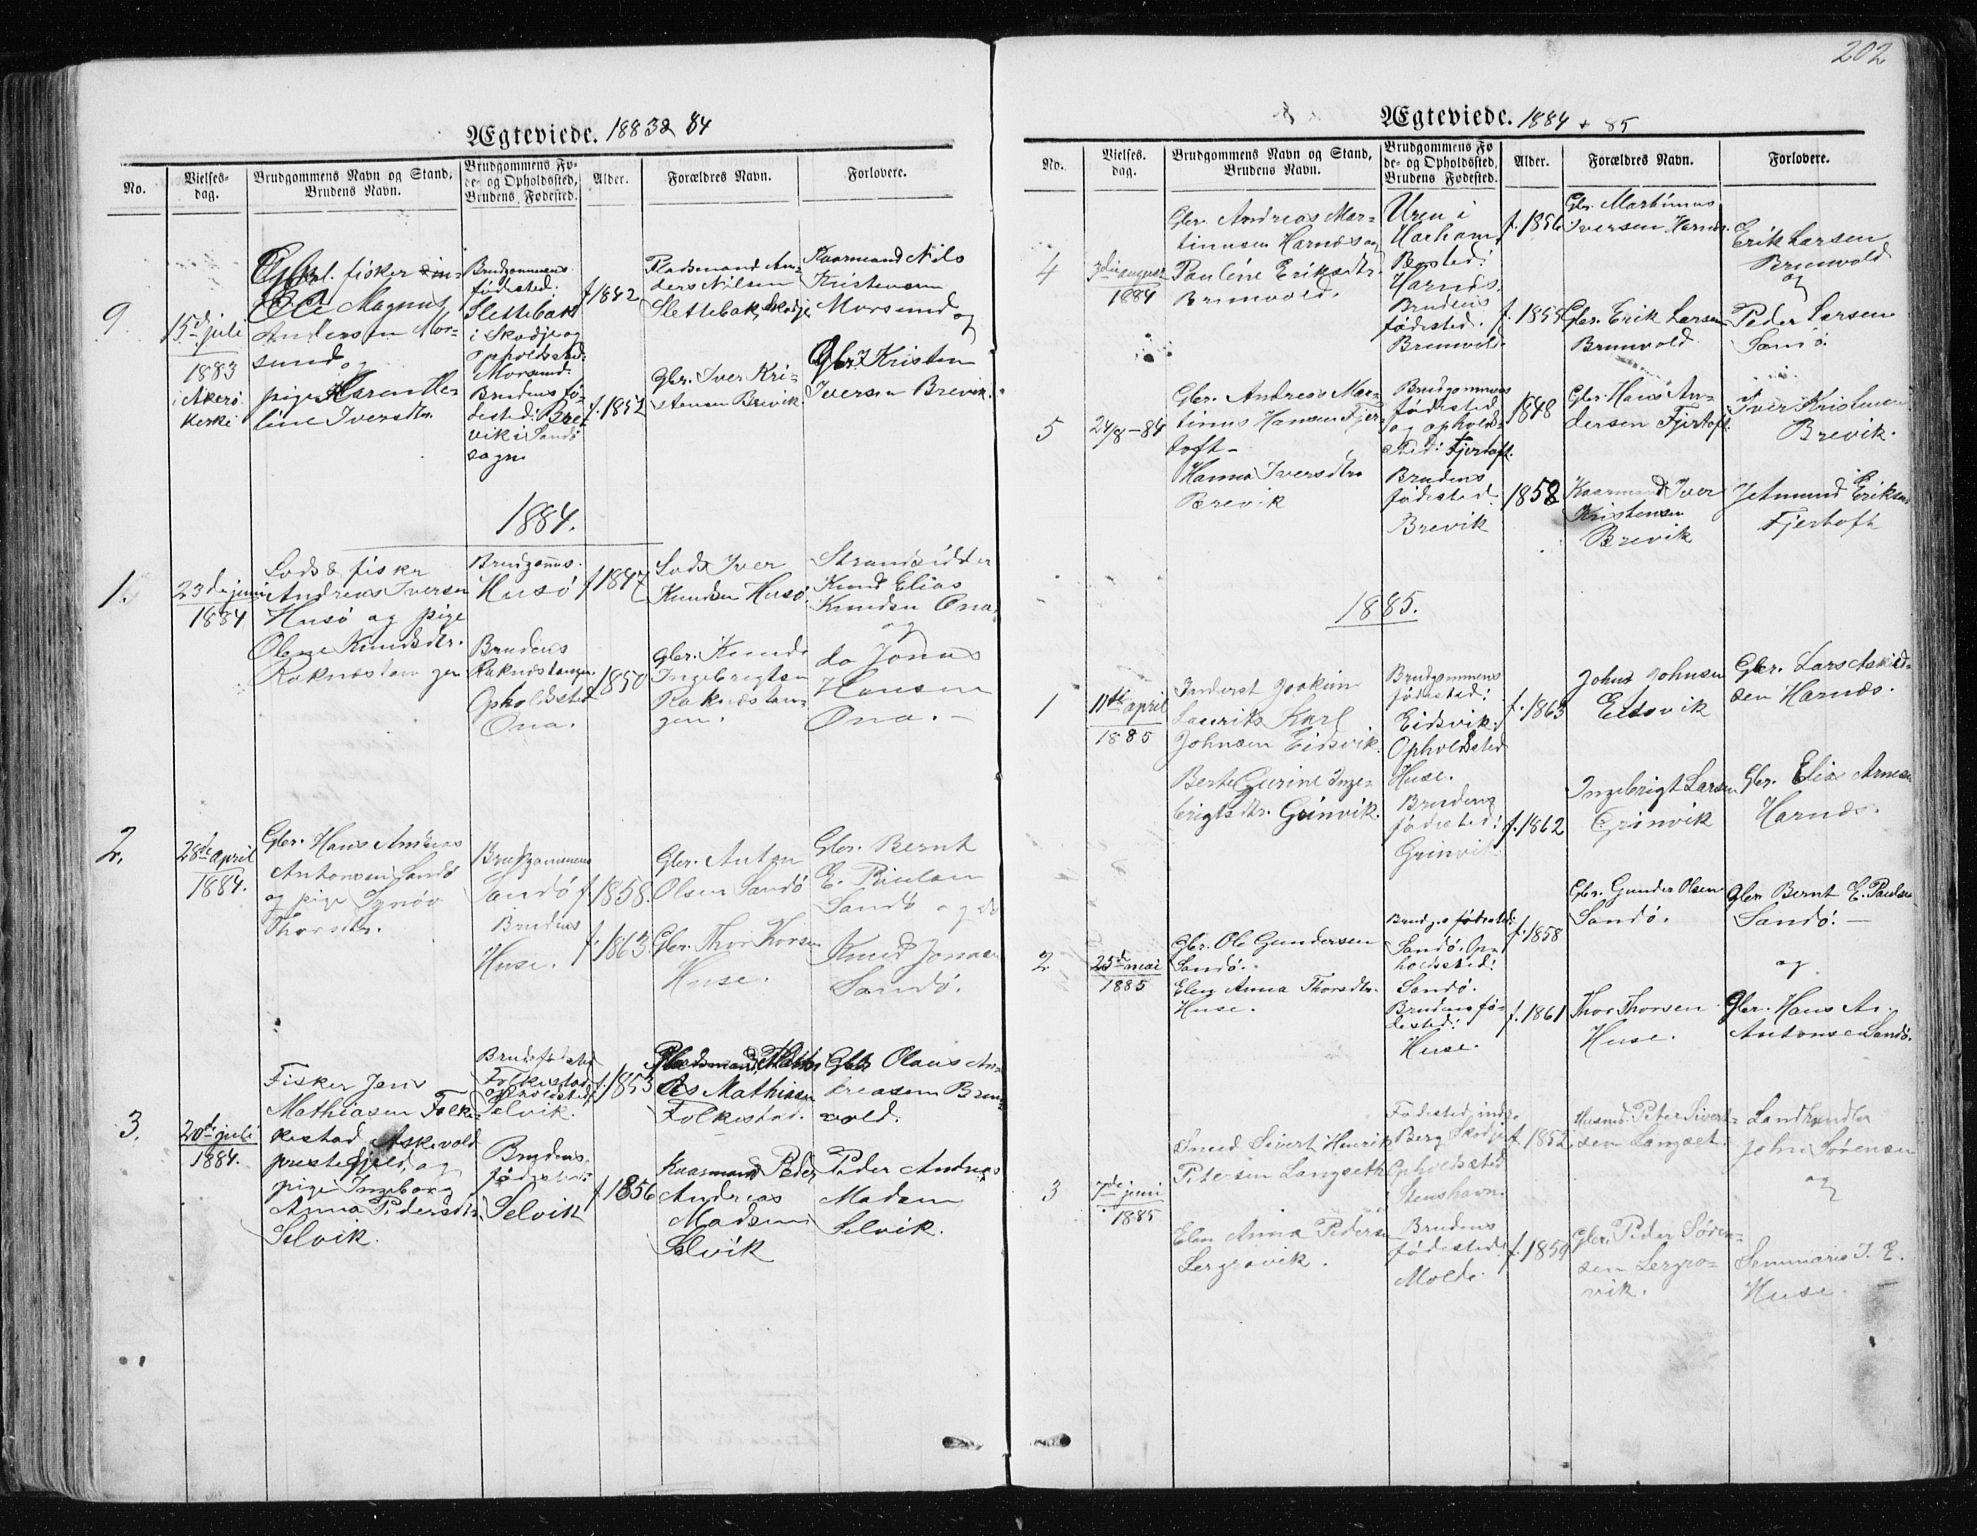 202
Ægteviede. 1883 & 84
No.
Vielses-
dag.
Brudgommens Navn og Stand,
Brudens Navn.
Brudgommens Fø-
de- og Opholdssted,
Brudens Fødested.
Alder.
Forældres Navn.
Forlovere.
9.
15de juli
1883
i Akerø
Kerke
fisker
Ole Magnus
Andersen Mor-
sund og
pige Maren He-
line Iversdtr.
Brudgommens
fødested:
Slettebak
i Skodje og
opholdssted:
Morsund.
Brudens fø-
dested: Bre-
vik i Sandø
sogn
f. 1842
f. 1852
Pladsmand An-
ders Nilsen
Slettebak, Skodje
Gbr. Iver Kri-
stensen Brevik.
Kaarmand Nils
Kristensen
Morsund og
Gbr. Kristen
Iversen Brevik.
1884.
1.
23de juni
1884
Lods & fisker
Andreas Iversen
Husø og pige
Oline Knudsdtr.
Raknestangen
Brudgoms
Husø
Brudens
Raknestangen
Opholdssted
Ona.
f 1847
1850
Lods Iver
Knudsen Husø.
Gbr. Knud
Ingebrigtsen
Raknestan-
gen.
Strandsidder
Knud Elias
Knudsen Ona
og
do Jonas
Hansen
Ona. –
2.
28de april
1884.
Gbr. Hans Andreas
Antonsen Sandø
og pige Synøv
Thorsdtr.
Brudgommens
Sandø
Brudens
Huse.
f. 1858.
f. 1863
Gbr. Anton
Olsen Sandø
Gbr. Thor Thorsen
Huse.
Gbr. Bernt
E. Paulsen
Sandø og do
Knud Jonsen
Sandø.
3.
20de juli
1884.
Fisker Jens
Mathiasen Folke-
kestad, Askevold
prestegjeld, og
pige Ingeborg
Anna Pedersdtr.
Selvik.
Brudg. fødested
Folkestad
opholdssted
Selvik.
Brudens
fødested:
Selvik
f. 1853
f. 1856
Pladsmand
Mathiasen
Folkestad.
Kaarmand Peder
Andreas
Madsen
Selvik
Gbr. Olaus An-
dreasen Brun-
vold.
Peder Andreas
Madsen
Selvik.
Ægteviede. 1884 + 85
No.
Vielses-
dag.
Brudgommens Navn og Stand,
Brudens Navn.
Brudgommens Fø-
de- og Opholdssted,
Brudens Fødested.
Alder.
Forældres Navn.
Forlovere.
4
3die august
1884
Gbr. Andreas Mar-
tinusen Harnes og
Pauline Eriksdtr.
Brunvold.
Uren i
Harham
Bosted:
Harnes.
Brudens
fødested.
Brunvold.
f. 1856
f. 1855
Gbr. Martinus
Iversen Harnes.
Gbr. Erik Larsen
Brunvold.
Erik Larsen
Brunvold
og
Peder Larsen
Sandø.
5
24/8 – 84
Gbr. Andreas Mar-
tinus Hansen Fjer-
toft –
Hanna Iversdtr.
Brevik
Brudgommens
fødested
og opholds-
sted: Fjertoft.
Brudens
fødested.
Brevik
1848
1858
Gbr. Hans An-
dersen Fjertoft.
Kaarmand Iver
Kristensen
Brevik
Iver Kristensen
Brevik.
Jetmund Eriksen
Fjertoft
1885.
1
11te april
1885
Inderst Joakim
Laurits Karl
Johnsen Eidsvik.
Berte Gurine Inge-
brigtsdtr. Grinvik.
Brudgommens
fødested:
Eidsvik.
Opholdssted
Huse.
Brudens
fødested:
Grinvik
f. 1863
f. 1862
John Johnsen
Eidsvik
Ingebrigt Larsen
Grinvik
Gbr. Lars Aslak-
sen Harnes.
Gbr. Elias Arnesen
Harnes.
2
25de mai
1885
Gbr. Ole Gundersen
Sandø.
Elen Anna Thorsdtr.
Huse.
Brudg.s fødested:
Sandø. Op-
holdssted:
Sandø.
Brudens fø-
dested:
Huse.
f. 1858
f. 1861
Gbr. Gunder Olsen
Sandø.
Thor Thorsen
Huse.
Gbr. Bernt E. Paulsen
Sandø. –
og
Gbr. Hans An.
Antonsen Sandø.
3
7de juni
1885
Smed Sivert Henrik
Petersen Langseth
Elen Anna Pedersen
Lergrovik.
Fødested
Berg Skodje
Opholdssted
Stenshavn.
Brudens
fødested:
Molde.
f. 1852
f. 1859
Husmd. Peter Sivert-
sen Langset.
Gbr. Peder Søren-
sen Lergro-
vik.
Landhandler
John Sørensen
og
Seminarist I. E.
Huse.